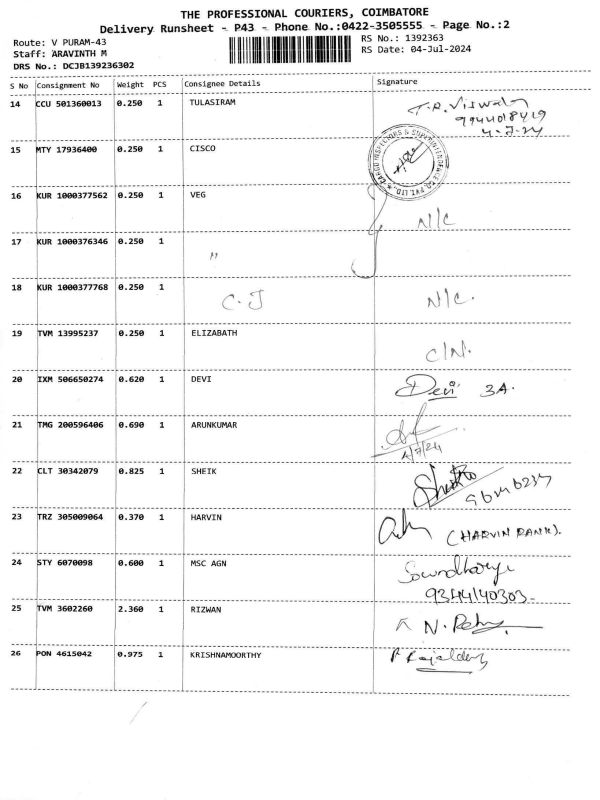 THE PROFESSIONAL COURIERS, COIMBATORE
Delivery Runsheet - P43 - Phone No.:0422-3505555 - Page No.:2
Route: V PURAM-43 RS No.: 1392363
Staff: ARAVINTH M RS Date: 04-Jul-2024
DRS No.: DCJB139236302
S No Consignment No Weight PCS Consignee Details Signature
14 CCU 501360013 0.250 1 TULASIRAM
15 MTY 17936400 0.250 1 CISCO
16 KUR 1000377562 0.250 1 VEG
N/C
17 KUR 1000376346 0.250 1
"
18 KUR 1000377768 0.250 1
C.J N/C.
19 TVM 13995237 0.250 1 ELIZABATH
C/N.
20 IXM 506650274 0.620 1 DEVI
Devi 3A.
21 TMG 200596406 0.690 1 ARUNKUMAR
4/7/24
22 CLT 30342079 0.825 1 SHEIK
23 TRZ 305009064 0.370 1 HARVIN
24 STY 6070098 0.600 1 MSC AGN
25 TVM 3602260 2.360 1 RIZWAN
26 PON 4615042 0.975 1 KRISHNAMOORTHY